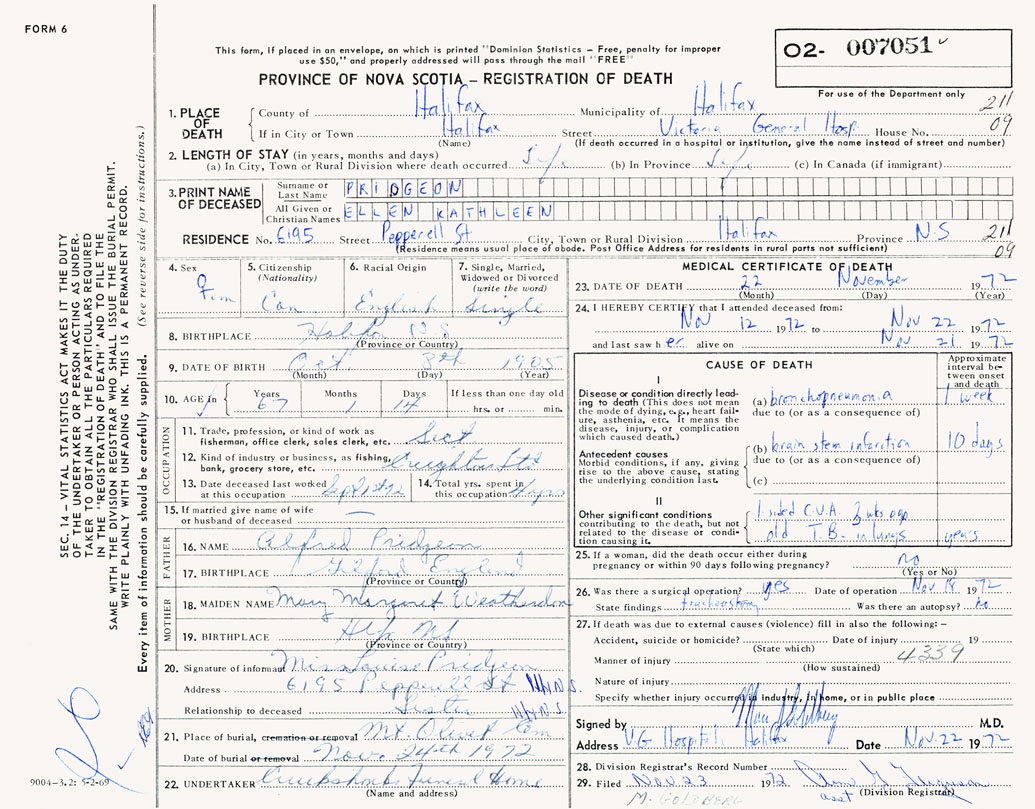 FORM 6
This form, if placed in an envelope, on which is printed "Dominion Statistics – Free, penalty for improper
use $50," and properly addressed will pass through the mail "FREE"
PROVINCE OF NOVA SCOTIA – REGISTRATION OF DEATH
O2- 007051
For use of the Department only
211
09
1. PLACE OF DEATH
County of Halifax Municipality of Halifax
If in City or Town Halifax Street Victoria General Hosp House No.
(Name) (If death occurred in a hospital or institution, give the name instead of street and number)
2. LENGTH OF STAY (in years, months and days)
(a) In City, Town or Rural Division where death occurred (b) In Province (c) In Canada (if immigrant)
3. PRINT NAME OF DECEASED
Surname or Last Name PRIDGEON
All Given or Christian Names ELLEN KATHLEEN
RESIDENCE No. 6195 Street Pepperell St City, Town or Rural Division Halifax Province N.S
(Residence means usual place of abode. Post Office Address for residents in rural parts not sufficient)
211
09
4. Sex Fem
5. Citizenship (Nationality) Can
6. Racial Origin English
7. Single, Married, Widowed or Divorced (write the word) Single
8. BIRTHPLACE Halifax N.S
(Province or Country)
9. DATE OF BIRTH Oct 8th 1905
(Month) (Day) (Year)
10. AGE in Years 67 Months 1 Days 14 If less than one day old hrs. or min.
OCCUPATION
11. Trade, profession, or kind of work as
fisherman, office clerk, sales clerk, etc. Sect
12. Kind of industry or business, as fishing,
bank, grocery store, etc. Creighton Ltd
13. Date deceased last worked
at this occupation Sept 1st 72
14. Total yrs. spent in
this occupation yrs
15. If married give name of wife
or husband of deceased —
FATHER
16. NAME Alfred Pridgeon
17. BIRTHPLACE England
(Province or Country)
MOTHER
18. MAIDEN NAME Mary Margaret Weatherdon
19. BIRTHPLACE Hfx NS
(Province or Country)
20. Signature of informant Miss Louise Pridgeon
Address 6195 Pepperell St Hfx N.S.
Relationship to deceased Sister N.S.
21. Place of burial, cremation or removal Mt. Olivet Cem
Date of burial or removal Nov. 24th 1972
22. UNDERTAKER Cruikshanks Funeral Home
(Name and address)
MEDICAL CERTIFICATE OF DEATH
23. DATE OF DEATH 22 November 1972
(Month) (Day) (Year)
24. I HEREBY CERTIFY that I attended deceased from:
Nov 12 1972 to Nov 22 1972
and last saw her alive on Nov 21 1972
CAUSE OF DEATH
Approximate interval between onset and death
I
Disease or condition directly leading to death (This does not mean the mode of dying, e.g., heart failure, asthenia, etc. It means the disease, injury, or complication which caused death.)
(a) bronchopneumonia 1 week
due to (or as a consequence of)
Antecedent causes
Morbid conditions, if any, giving rise to the above cause, stating the underlying condition last.
(b) brain stem infarction 10 days
due to (or as a consequence of)
(c)
II
Other significant conditions contributing to the death, but not related to the disease or condition causing it.
sided C.V.A. wks ago
old T.B. in lungs years
25. If a woman, did the death occur either during
pregnancy or within 90 days following pregnancy? no
(Yes or No)
26. Was there a surgical operation? yes Date of operation Nov 18 1972
State findings tracheostomy Was there an autopsy? No
27. If death was due to external causes (violence) fill in also the following: –
Accident, suicide or homicide? Date of injury 19
(State which)
4339
Manner of injury
(How sustained)
Nature of injury
Specify whether injury occurred in industry, in home, or in public place
Signed by M.D.
Address V.G Hospital, Halifax Date Nov. 22 1972
28. Division Registrar's Record Number
29. Filed Nov. 23 1972
(Division Registrar)
asst
M. GOLDBERG
SEC. 14 – VITAL STATISTICS ACT MAKES IT THE DUTY
OF THE UNDERTAKER OR PERSON ACTING AS UNDER-
TAKER TO OBTAIN ALL THE PARTICULARS REQUIRED
IN THE "REGISTRATION OF DEATH" AND TO FILE THE
SAME WITH THE DIVISION REGISTRAR WHO SHALL ISSUE THE BURIAL PERMIT.
WRITE PLAINLY WITH UNFADING INK. THIS IS A PERMANENT RECORD.
Every item of information should be carefully supplied. (See reverse side for instructions.)
9004-3.2: 5-2-69